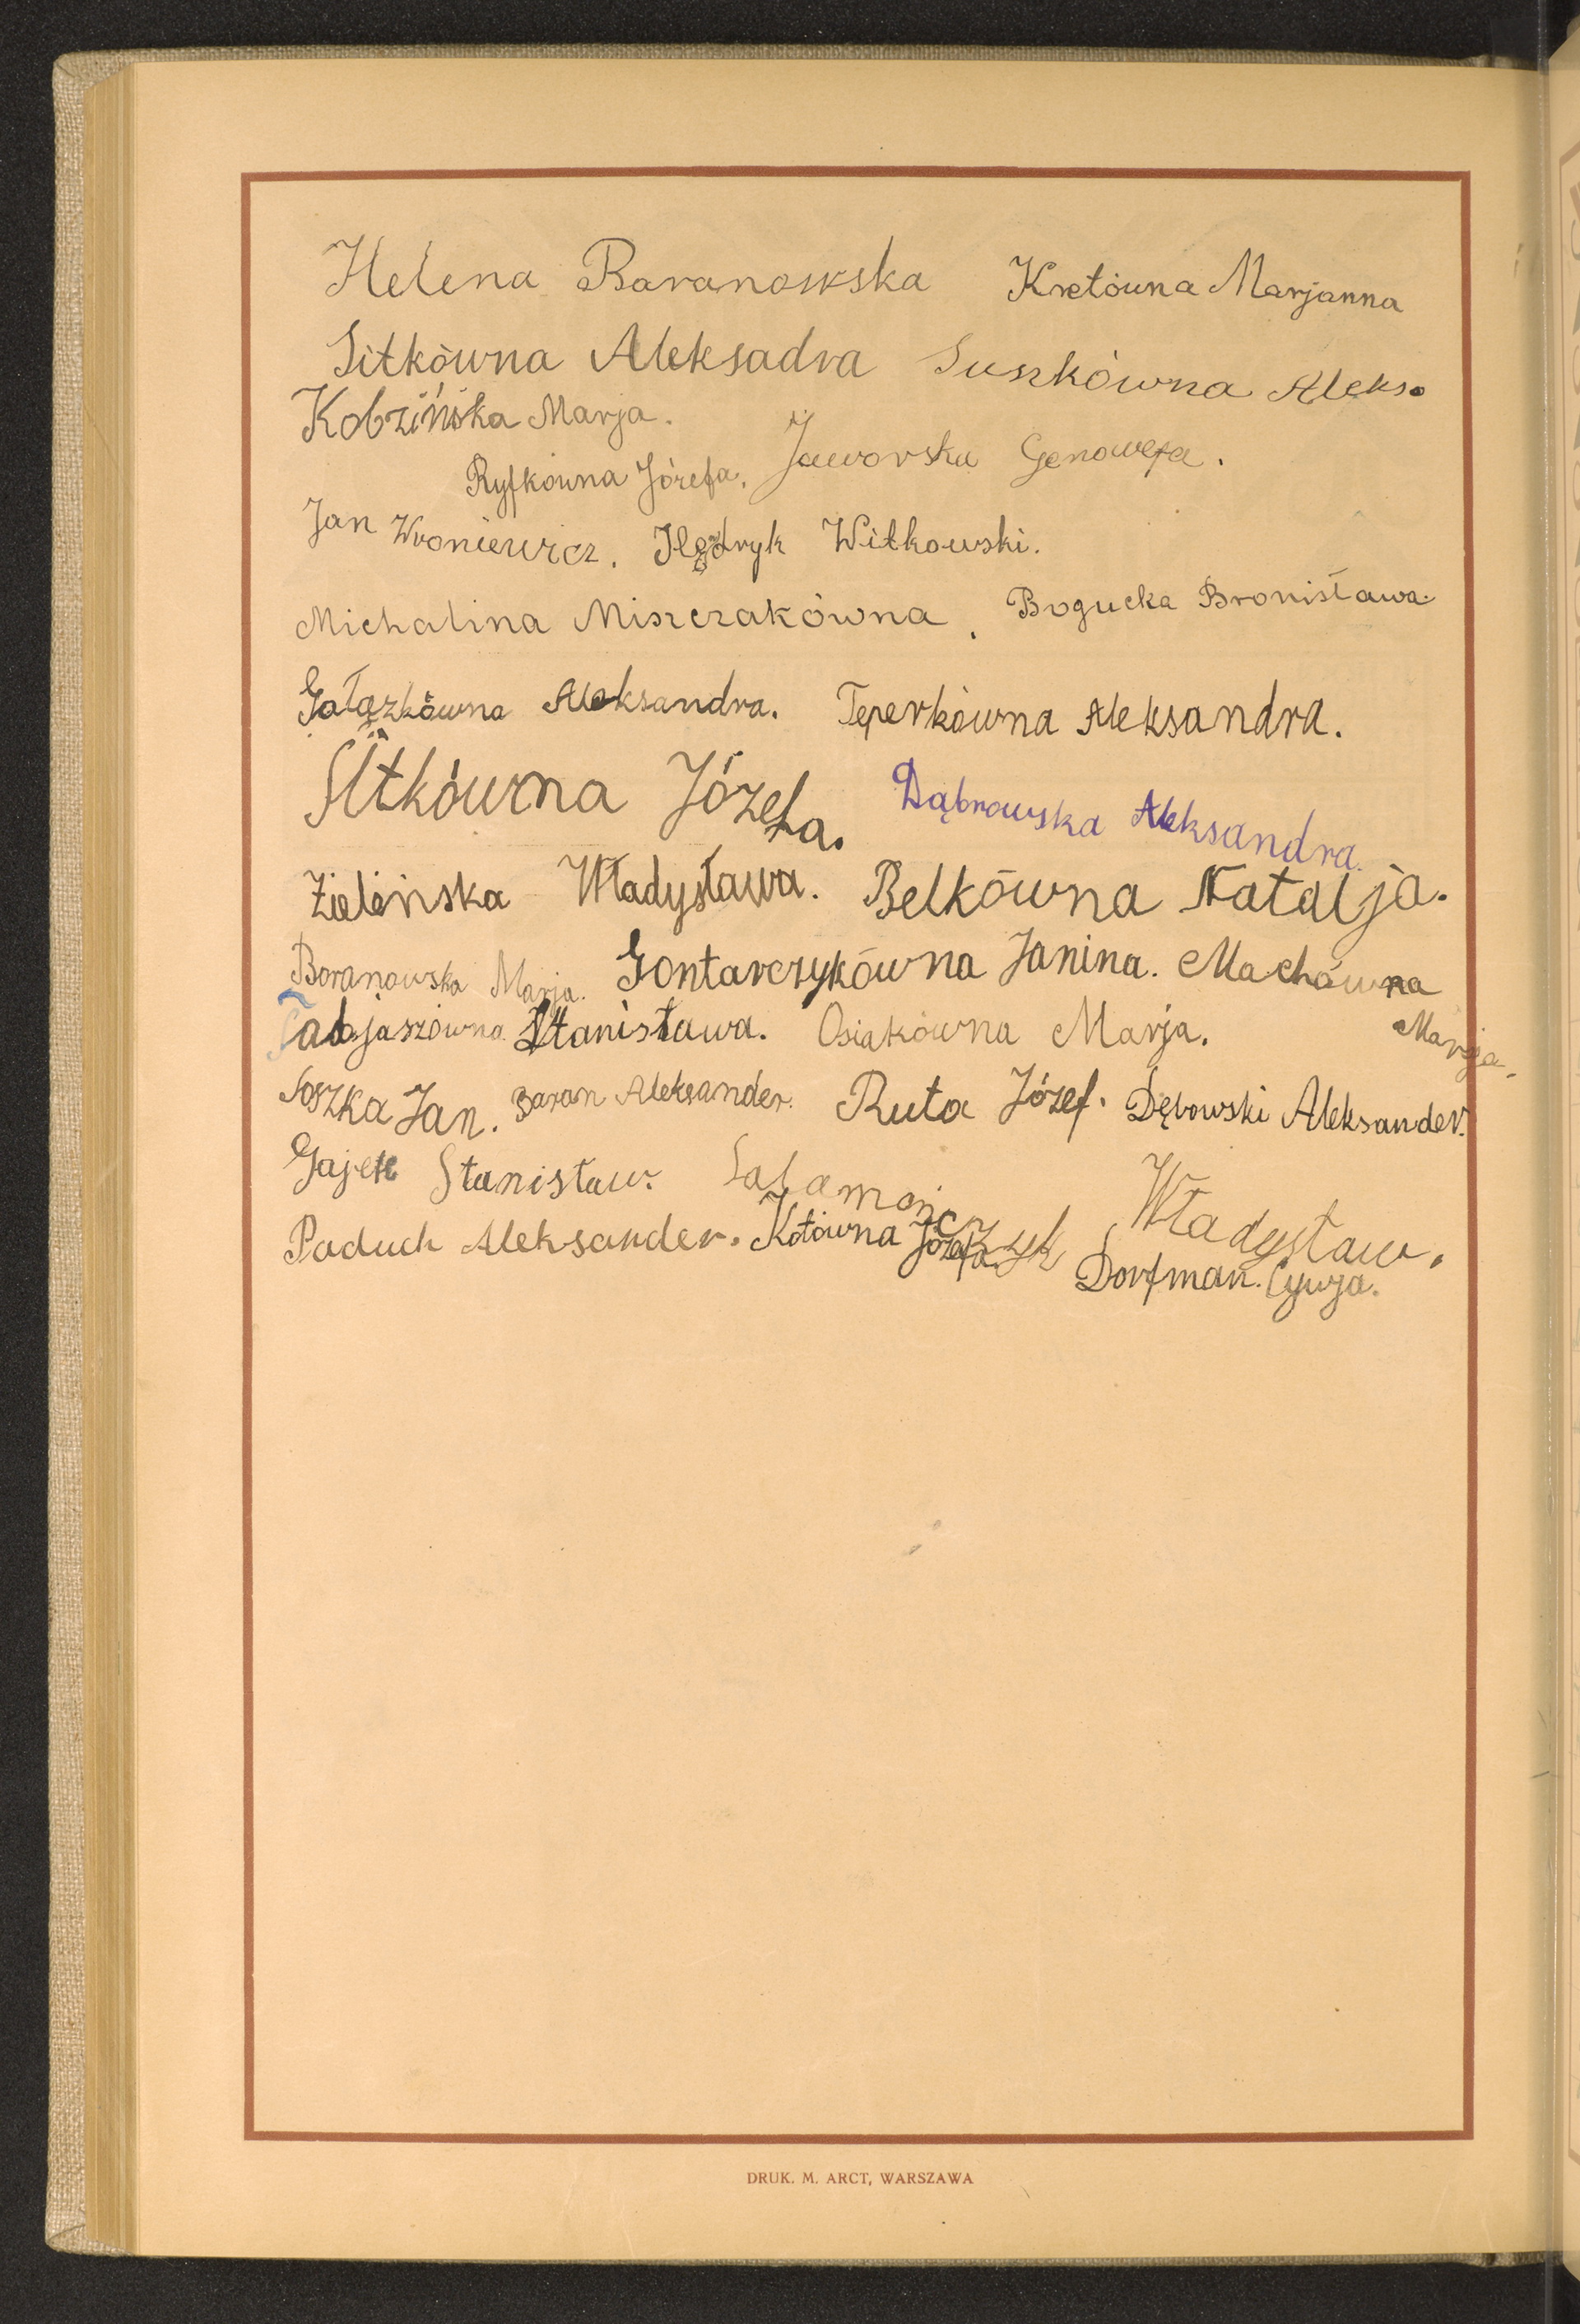 Helena Baranowska Kretówna Marjanna
Sitkówna Aleksadra Suszkówna Aleks.
Kobzińska Marja.
Ryfkówna Józefa. Jaworska Genowefa.
Jan Wroniewicz. Witkowski.
Michalina Miszczakówna. Bogucka Bronisława.
Gałązkówna Aleksandra. Teperkówna Aleksandra.
Sitkówna Józefa. Dąbrowska Aleksandra.
Zielińska Władysława. Belkówna Natalja.
Baranowska Marja. Gontarczykówna Janina. Machówna
Marja.
Tabjaszówna Stanisława. Osiakówna Marja.
Soszka Jan. Baran Aleksander. Ruta Józef. Dębowski Aleksander.
Gajek Stanisław. Salamończyk Władysław.
Paduch Aleksander. Kotówna Józefa. Dorfman. Cywja.
DRUK. M. ARCT, WARSZAWA